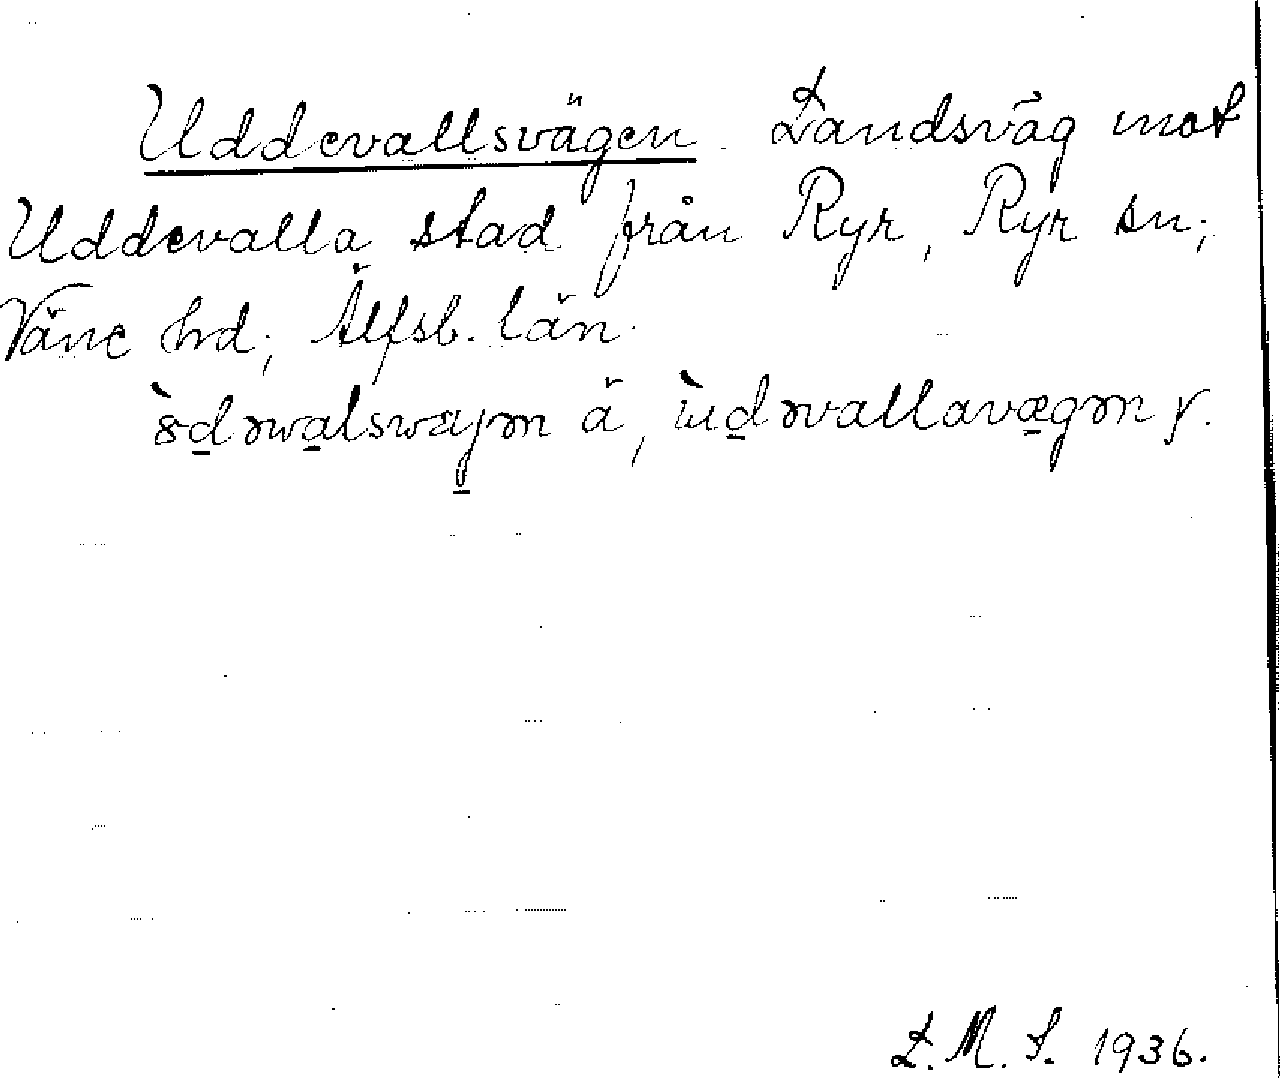 Uddevallsvägen. Landsväg mot
Uddevalla stad från Ryr, Ryr sn;
Väne hd; Älfsb. län.
ä, y.
L. M. S. 1936.